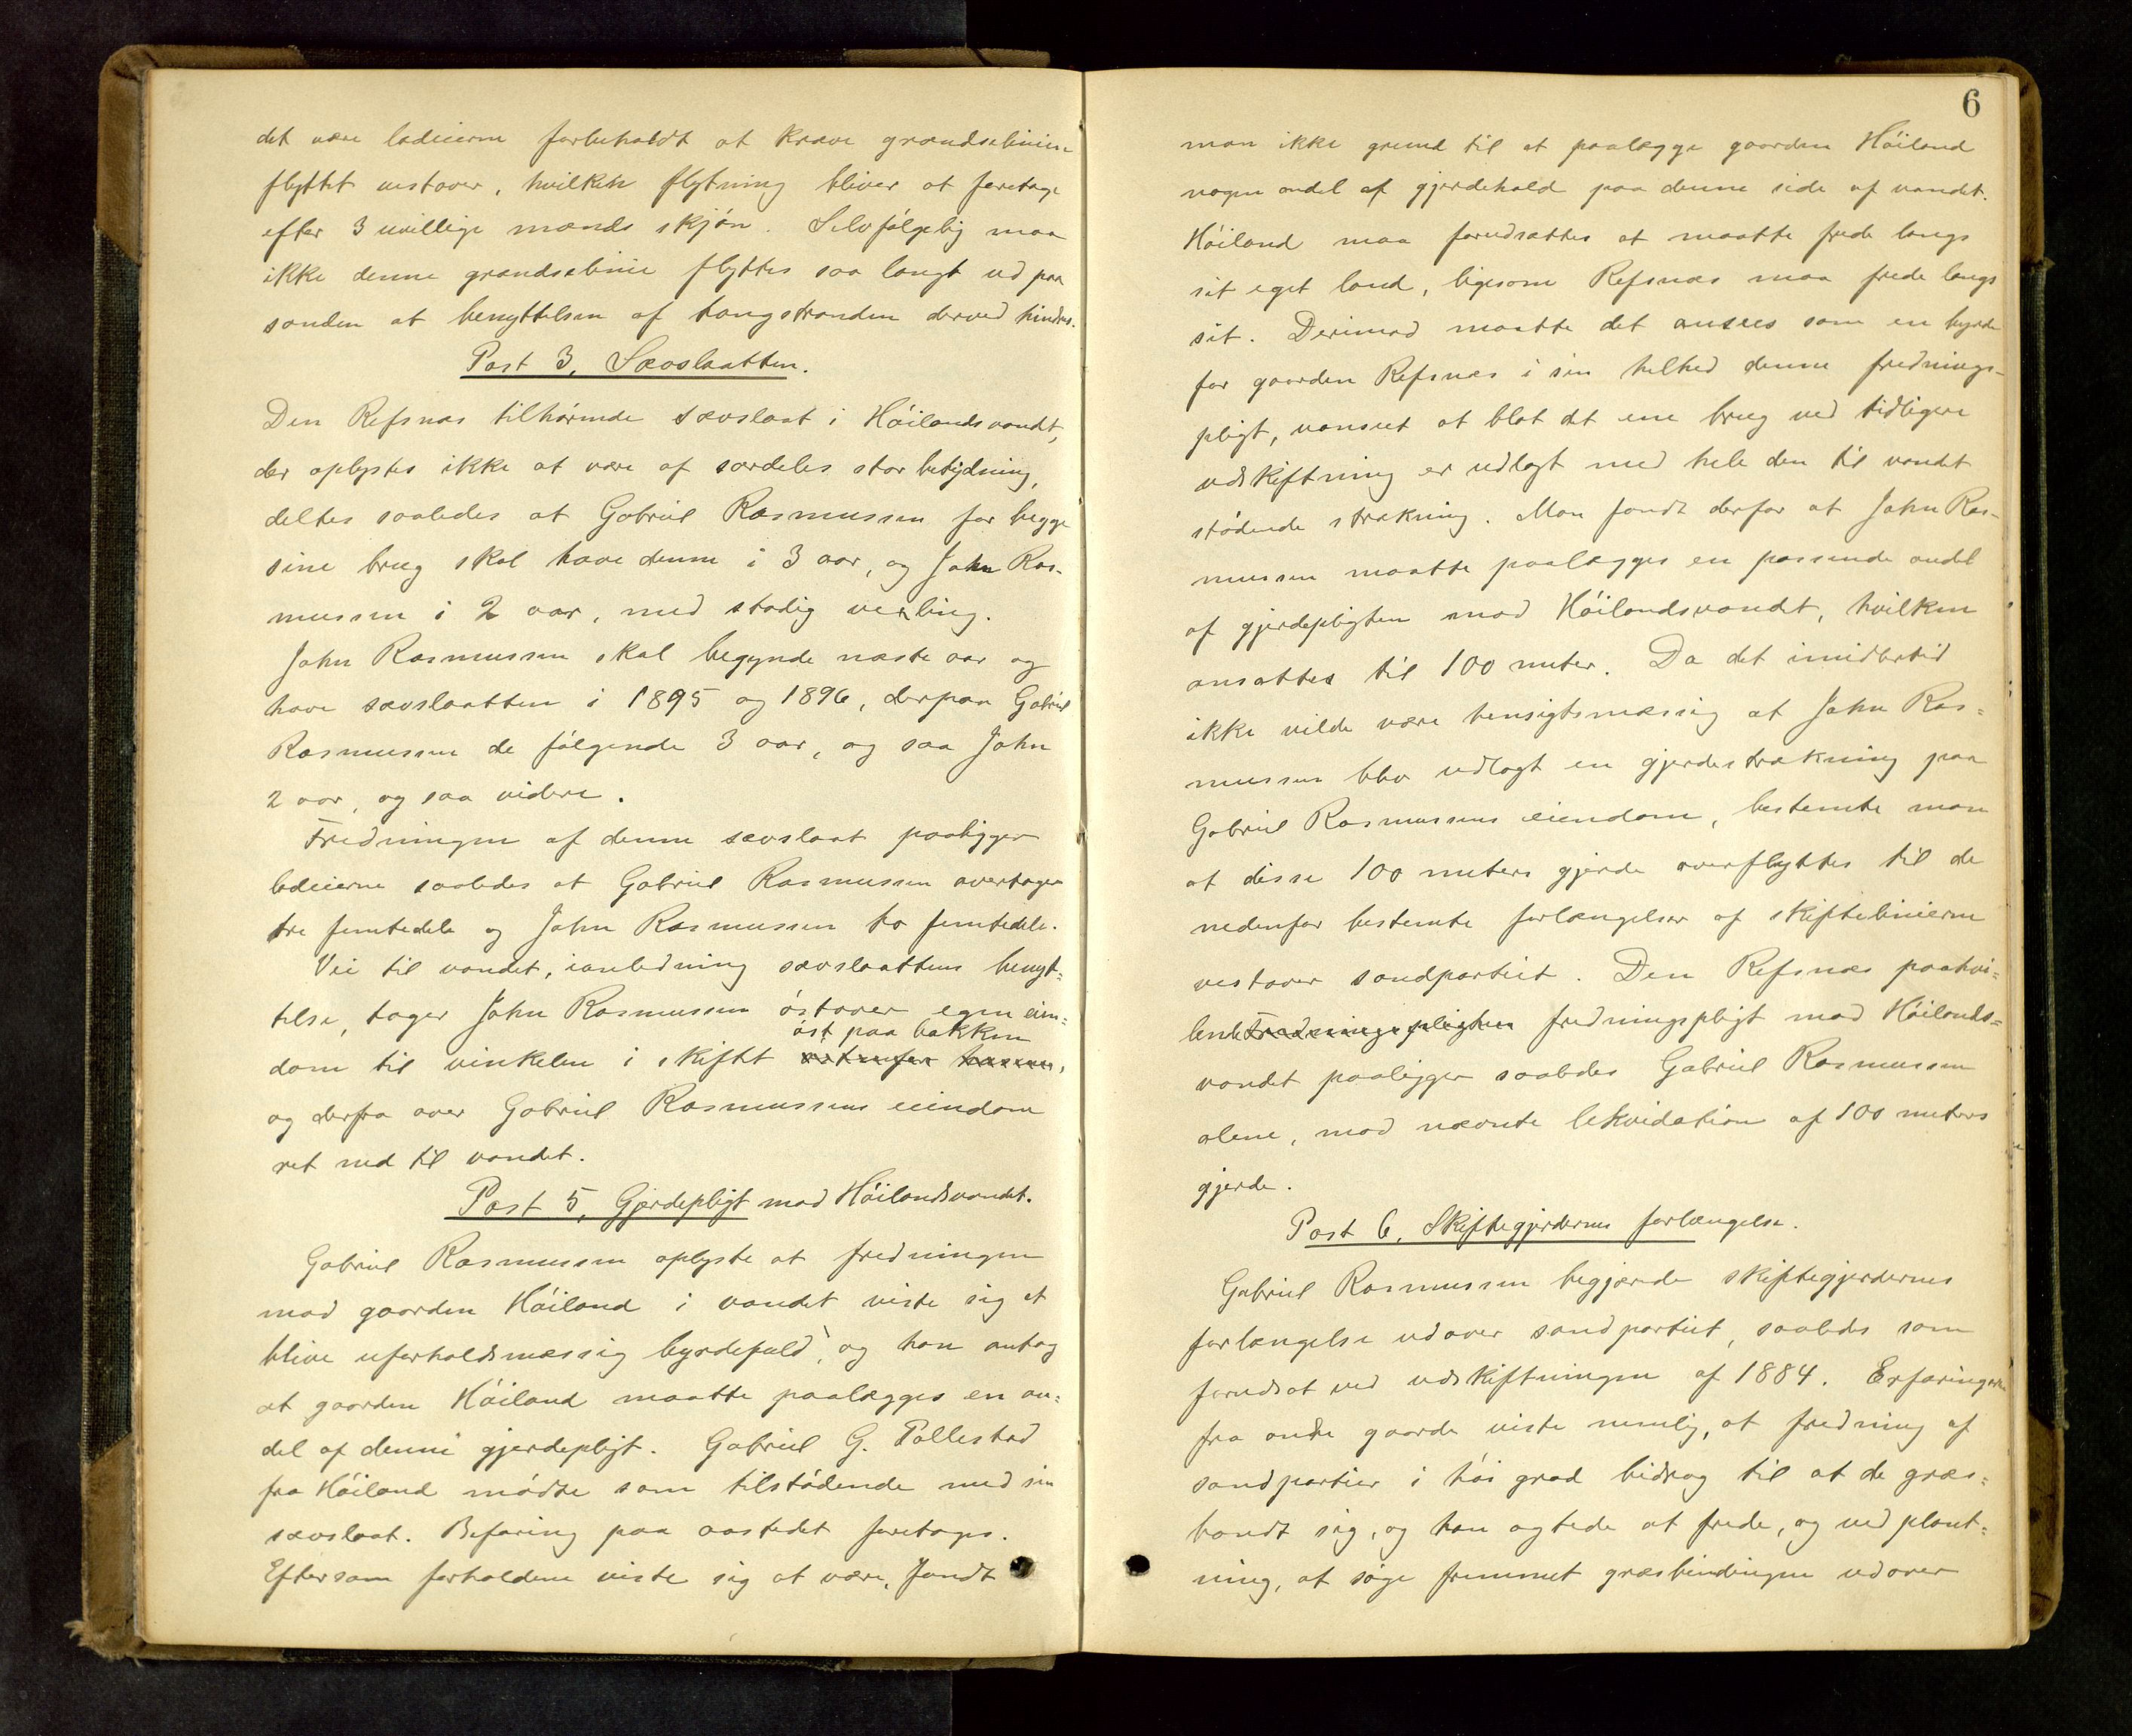 det være lodeierne forbeholdt at kræve grændselinien
flyttet vestover, hvilken flytning bliver at foretage
efter 3 uvillige mænds skjön. Selvfölgelig maa
ikke denne grændselinie flyttes saa langt ud paa
sanden at benyttelsen af tangstranden derved hindres.
Post 3, Sævslaatten.
Den Refsnæs tilhörende sævslaat i Höilandsvandt,
der oplystes ikke at være af særdeles stor betydning,
deltes saaledes at Gabriel Rasmussen for begge
sine brug skal have denne i 3 aar, og John Ras-
mussen i 2 aar, med stadig vexling.
John Rasmussen skal begynde næste aar og
have sævslaatten i 1895 og 1896, derpaa Gabriel
Rasmussen de fölgende 3 aar, og saa John
2 aar, og saa videre.
Fredningen af denne sævslaat paaligger
lodeierne saaledes at Gabriel Rasmussen overtager
tre femtedele og John Rasmussen to femtedele.
Vei til vandet, ianledning sævslaattens benyt=
telse, tager John Rasmussen östover egen eien=
öst paa bakken
dom til vinkelen i skiftet
og derfra over Gabriel Rasmussens eiendom
ret ned til vandet.
Post 5, Gjerdepligt mod Höilandsvandet.
Gabriel Rasmussen oplyste at fredningen
mod gaarden Höiland i vandet viste sig at
blive uforholdsmæssig byrdefuld, og han antog
at gaarden Höiland maatte paalægges en an=
del af denne gjerdepligt. Gabriel G. Pollestad
fra Höiland mödte som tilstödende med sin
sævslaat. Befaring paa aastedet foretoges.
Eftersom forholdene viste sig at være, fandt
6
man ikke grund til at paalægge gaarden Höiland
nogen andel af gjerdehold paa denne side af vandet.
Höiland maa forudsættes at maatte frede langs
sit eget land, ligesom Refsnæs maa frede langs
sit. Derimod maatte det ansees som en byrde
for gaarden Refsnæs i sin helhed denne frednings-
pligt, uanseet at blot det ene brug ved tidligere
udskiftning er udlagt med hele den til vandet
stödende strækning. Man fandt derfor at John Ras-
mussen maatte paalægges en passende andel
af gjerdepligten mod Höilandsvandt, hvilken
ansattes til 100 meter. Da det imidlertid
ikke vilde være hensigtsmæssig at John Ras=
mussen blev udlagt en gjerdestrækning paa
Gabriel Rasmussens eiendom, bestemte man
at disse 100 meters gjerde overflyttes til de
nedenfor bestemte forlængelser af skiftelinierne
vestover sandpartiet. Den Refsnæs paahvi=
lende Fredningspligten fredningspligt mod Höilands=
vandet paaligger saaledes Gabriel Rasmussen
alene, mod nævnte lekvidation af 100 meters
gjerde.
Post 6, Skiftegjerdernes forlængelse.
Gabriel Rasmussen begjærede skiftegjerdernes
forlængelse udover sandpartiet, saaledes som
forudsat ved udskiftningen af 1884. Erfaringerne
fra andre gaarde viste nemlig, at fredning af
sandpartier i höi grad bidrog til at de græs=
bandt sig, og han agtede at frede, og ved plant=
ning, at söge fremmet græsbindingen udover